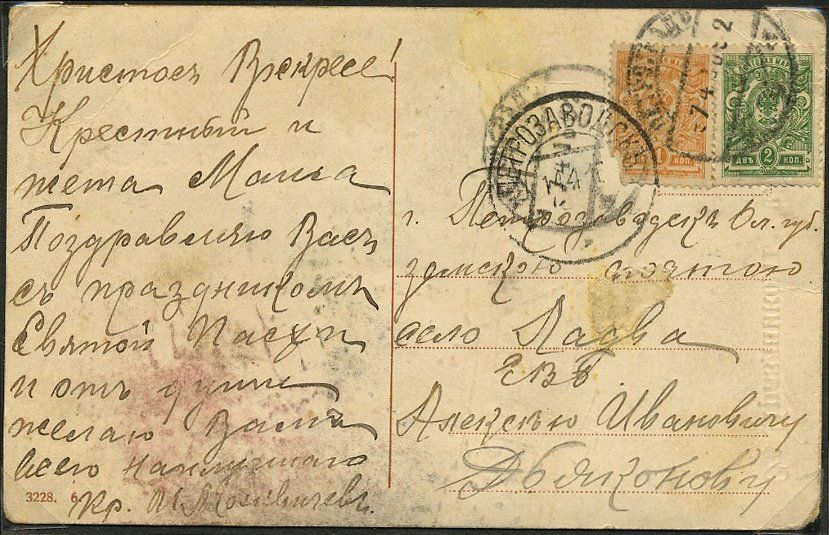 Христосъ Воскресе!
Крестный и
тета Маша
Поздравляю Васъ
съ праздникомъ
Святой Пасхи
и отъ души
желаю Вамъ
всего наилучшаго
Кр.
3228. 6.
ПЕТРОЗАВОДСКЪ
ДВѢ 2 КОП.
КОП.
г. Петрозаводскъ Ол. губ.
земскою почтою
село Ладва
ЕВБ
Алексѣю Ивановичу
Дьяконову